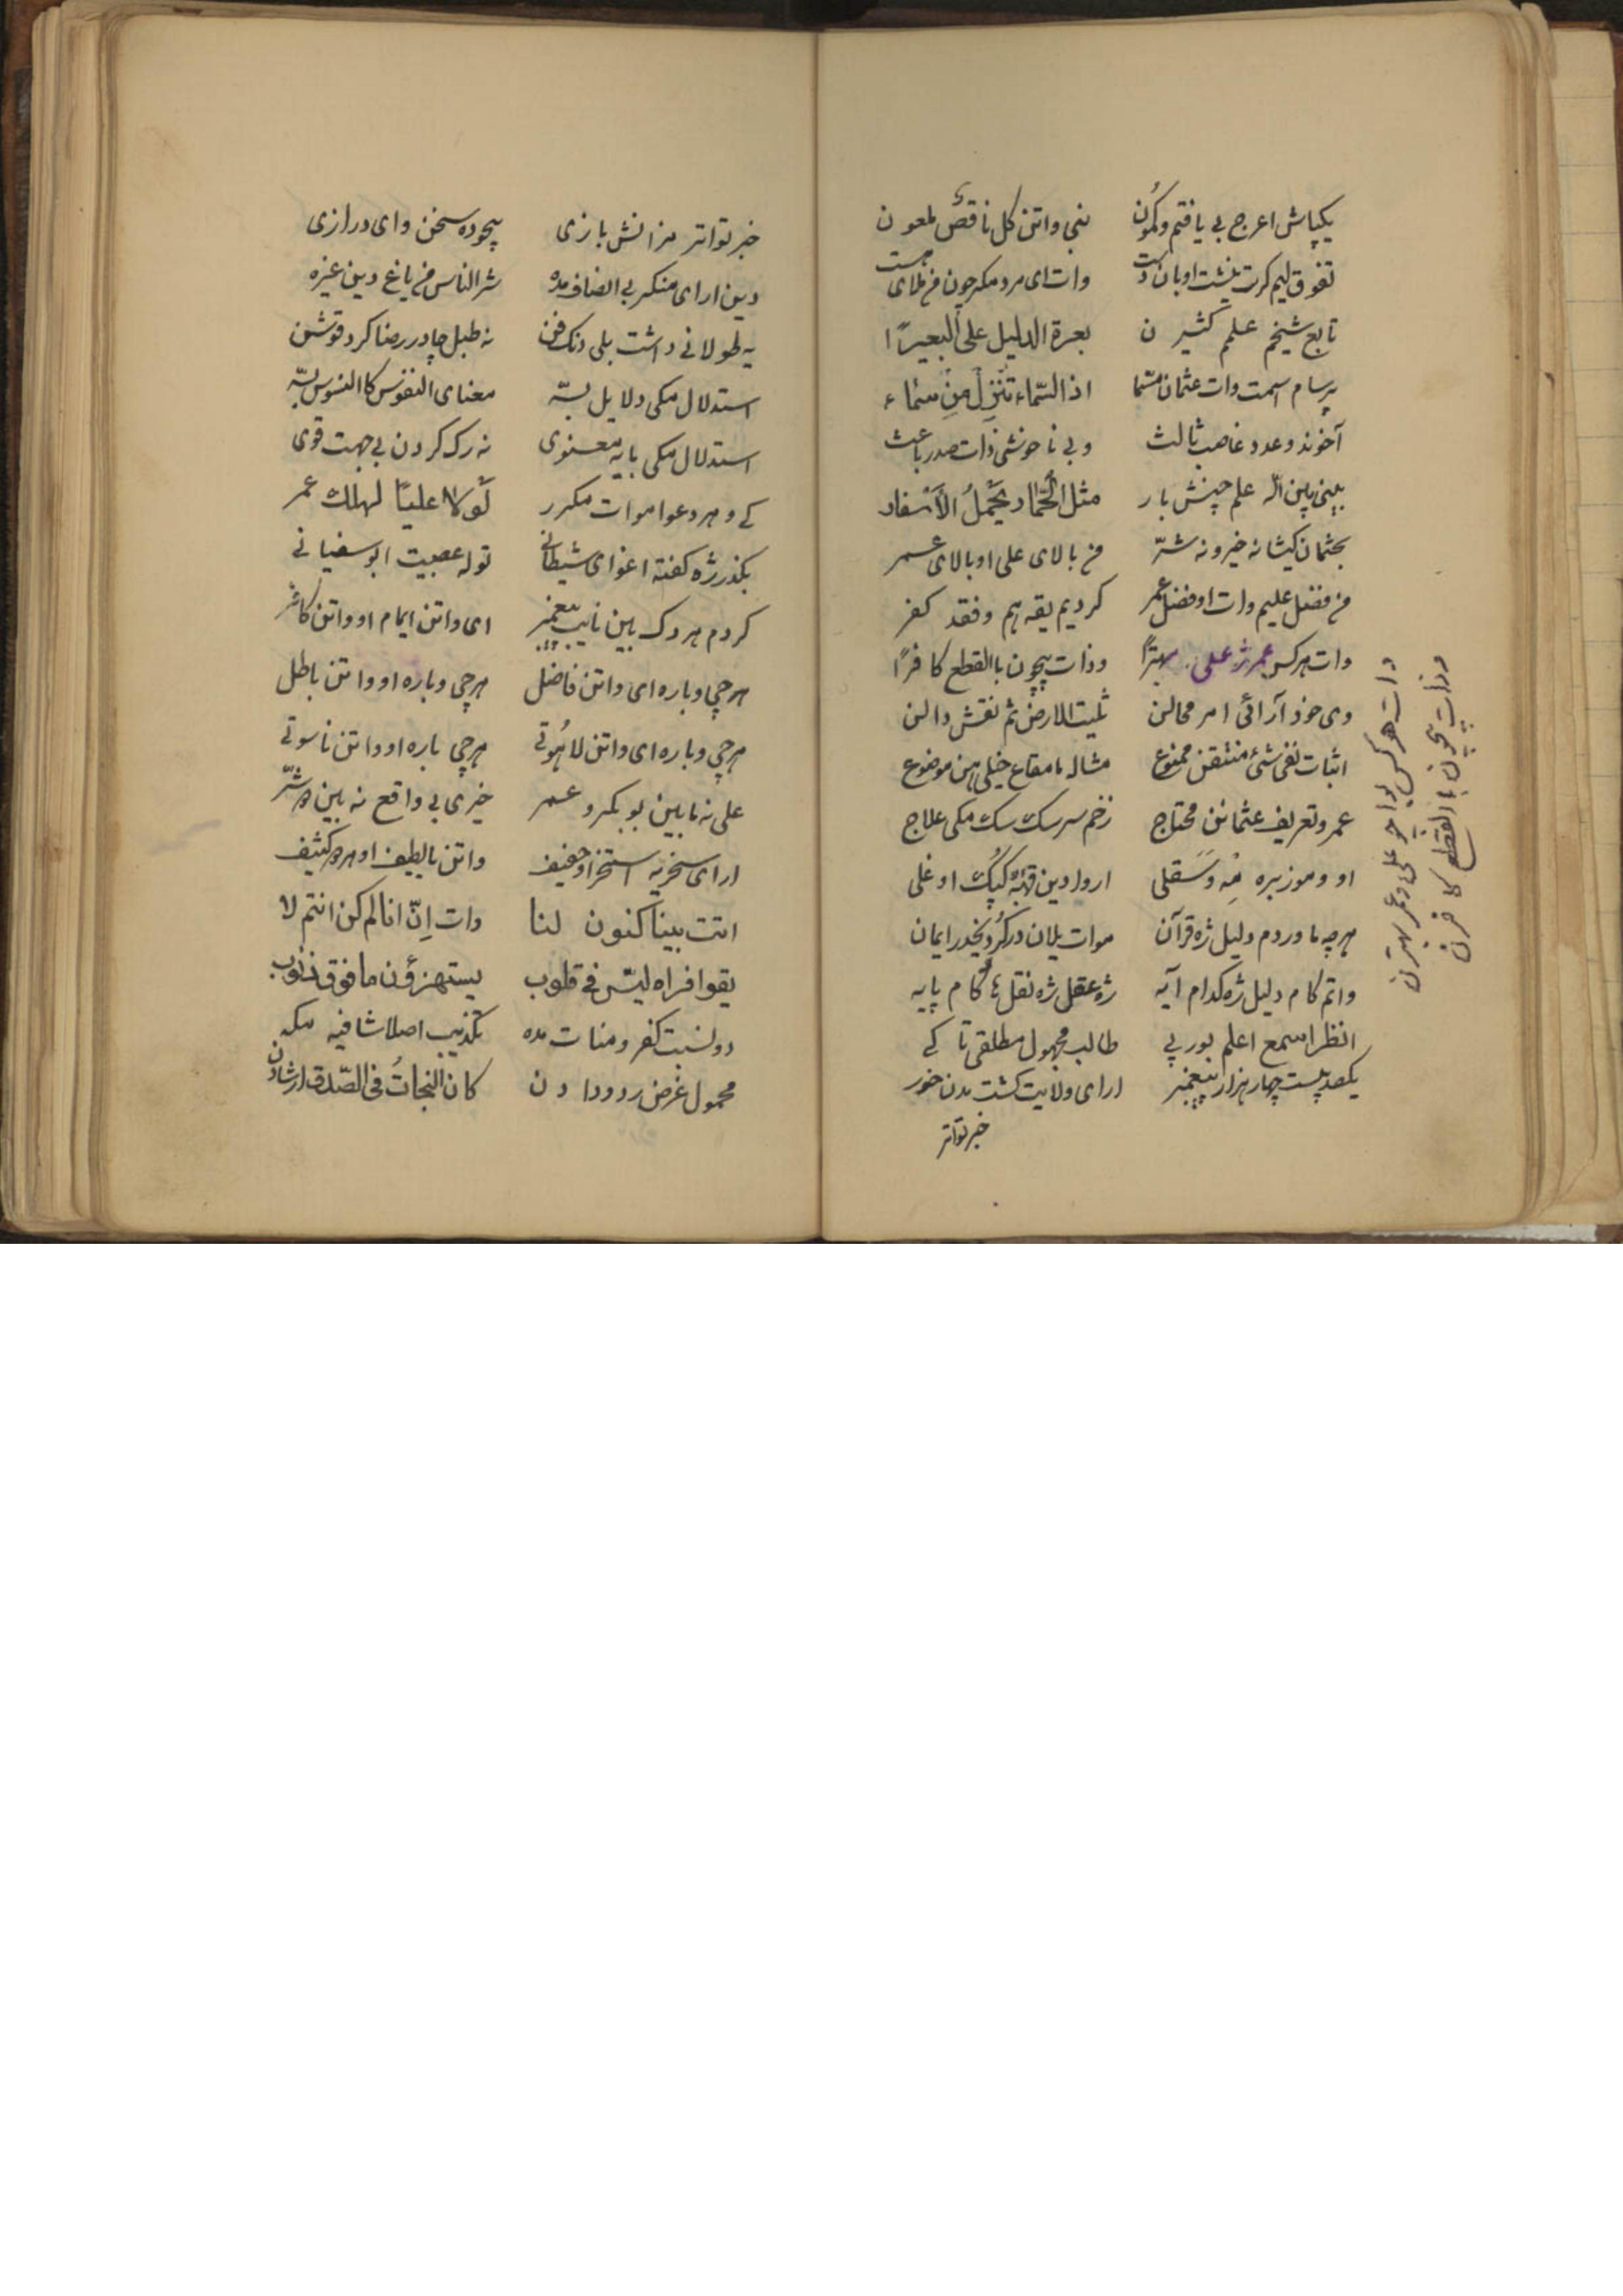 یکپاش اعرج بی یافتم وکمون نبی واتن کل ناقص لمعون
تفوق لیم کرت پشت اوبان دست وات ای مرد مکرچون فرملای
تابع شیخم علمم کثیر ن بعرة الدلیل علی البعیرًا
پرسام اسمت وات عثمان مسّما اذ السّماء تنزل من سماء
آخوند وعدد غاصب ثالث وبی ناخوشی ذات صدر باعث
بینی پاین اله علم چپنش بار مثل الحمار یحمل الأسفار
بعثمان کیشانه خیرو نه شرّ من بالای علی او بالای عمر
من فضل علیم وات او فضل عمر کردیم یقه هم و فقد کفر
وات هرکس عمر ژعلی بهترًا وذات پیچون باالقطع کافرًا
وی خود آرائی امر محالن ثبت الارض ثم نقش دالن
اثبات نفی شیٔ منتقن ممنوع مشاله مامقاع خیلی هن موضوع
عمر وتعریف عثمانن محتاج زخم سر سک سک مکی علاج
او وموز بره منه وسقلی اروا دین کپک اوغلی
هرچه ماوردم دلیل ژه قرآن موات یلان درکرد ایمان
واتم کام دلیل ژه کدام آیه ژه عقل ژه نقل یا کام پایه
انظر اسمع اعلم بور پی طالب مجهول مطلقی تا کے
یکصد بیست چهار هزار پیغمبر ارای ولایت کشت مدن خور
خبر تواتر
وات هرکس یواچو علی وعمر بهترن
وذات پیچون باالقطع کافرن
خبر تواتر مزانش بازی پیچوده سخن وای درازی
دین ارای منکر بی انصاف مده شر الناس من یاغ دین غیره
یه طولانی داشت بلی دنک فن نه طبل چادر رضا کرد قوشن
استدلال مکی دلایل بسّه معنای النفوس کاالنسوس بسّه
استدلال مکی بایه معنوی نه رک کردن بی جهت قوی
کے و مرد عوا موات مکرر لولا علیًا لهلك عمر
بگذر ژه کفته اغوای شیطانی توله عصبیت ابوسفیانی
کردم هر دک بین نایب پیغمبر ای واتن ایمام او واتن کافر
هرچی وباره ای واتن فاضل هرچی وباره او واتن باطل
هرچی وباره ای واتن لاهوتی هرچی باره او واتن ناسوتی
علی نه مابین بوبکر و عمر خیری بی واقع نه بین دو شرّ
ارای سخریه استخراو خفیف واتن یا لطیف او هر دو کثیف
انت بینا کنون لنا وات اِنّ انا لم کن انتم لا
یقوا فراه لیس فی قلوب یستهزؤن مافوق ذنوب
دو نسبت کفر و منات مده تکذیب اصلا شافیه مکه
محمول غرض ردودا دن کان النجات فی الصّدق ارشادن